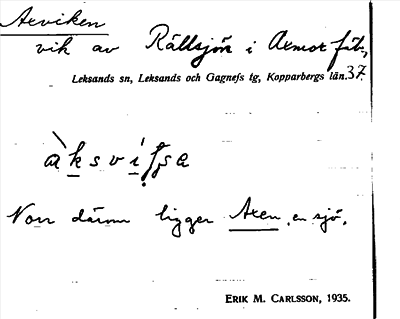 Axviken
vik av Rällsjön i Axmor fäb.,
Leksands sn, Leksands och Gagnefs tg, Kopparbergs län. 37.
Norr därom ligger Axen, en sjö.
ERIK M. CARLSSON, 1935.